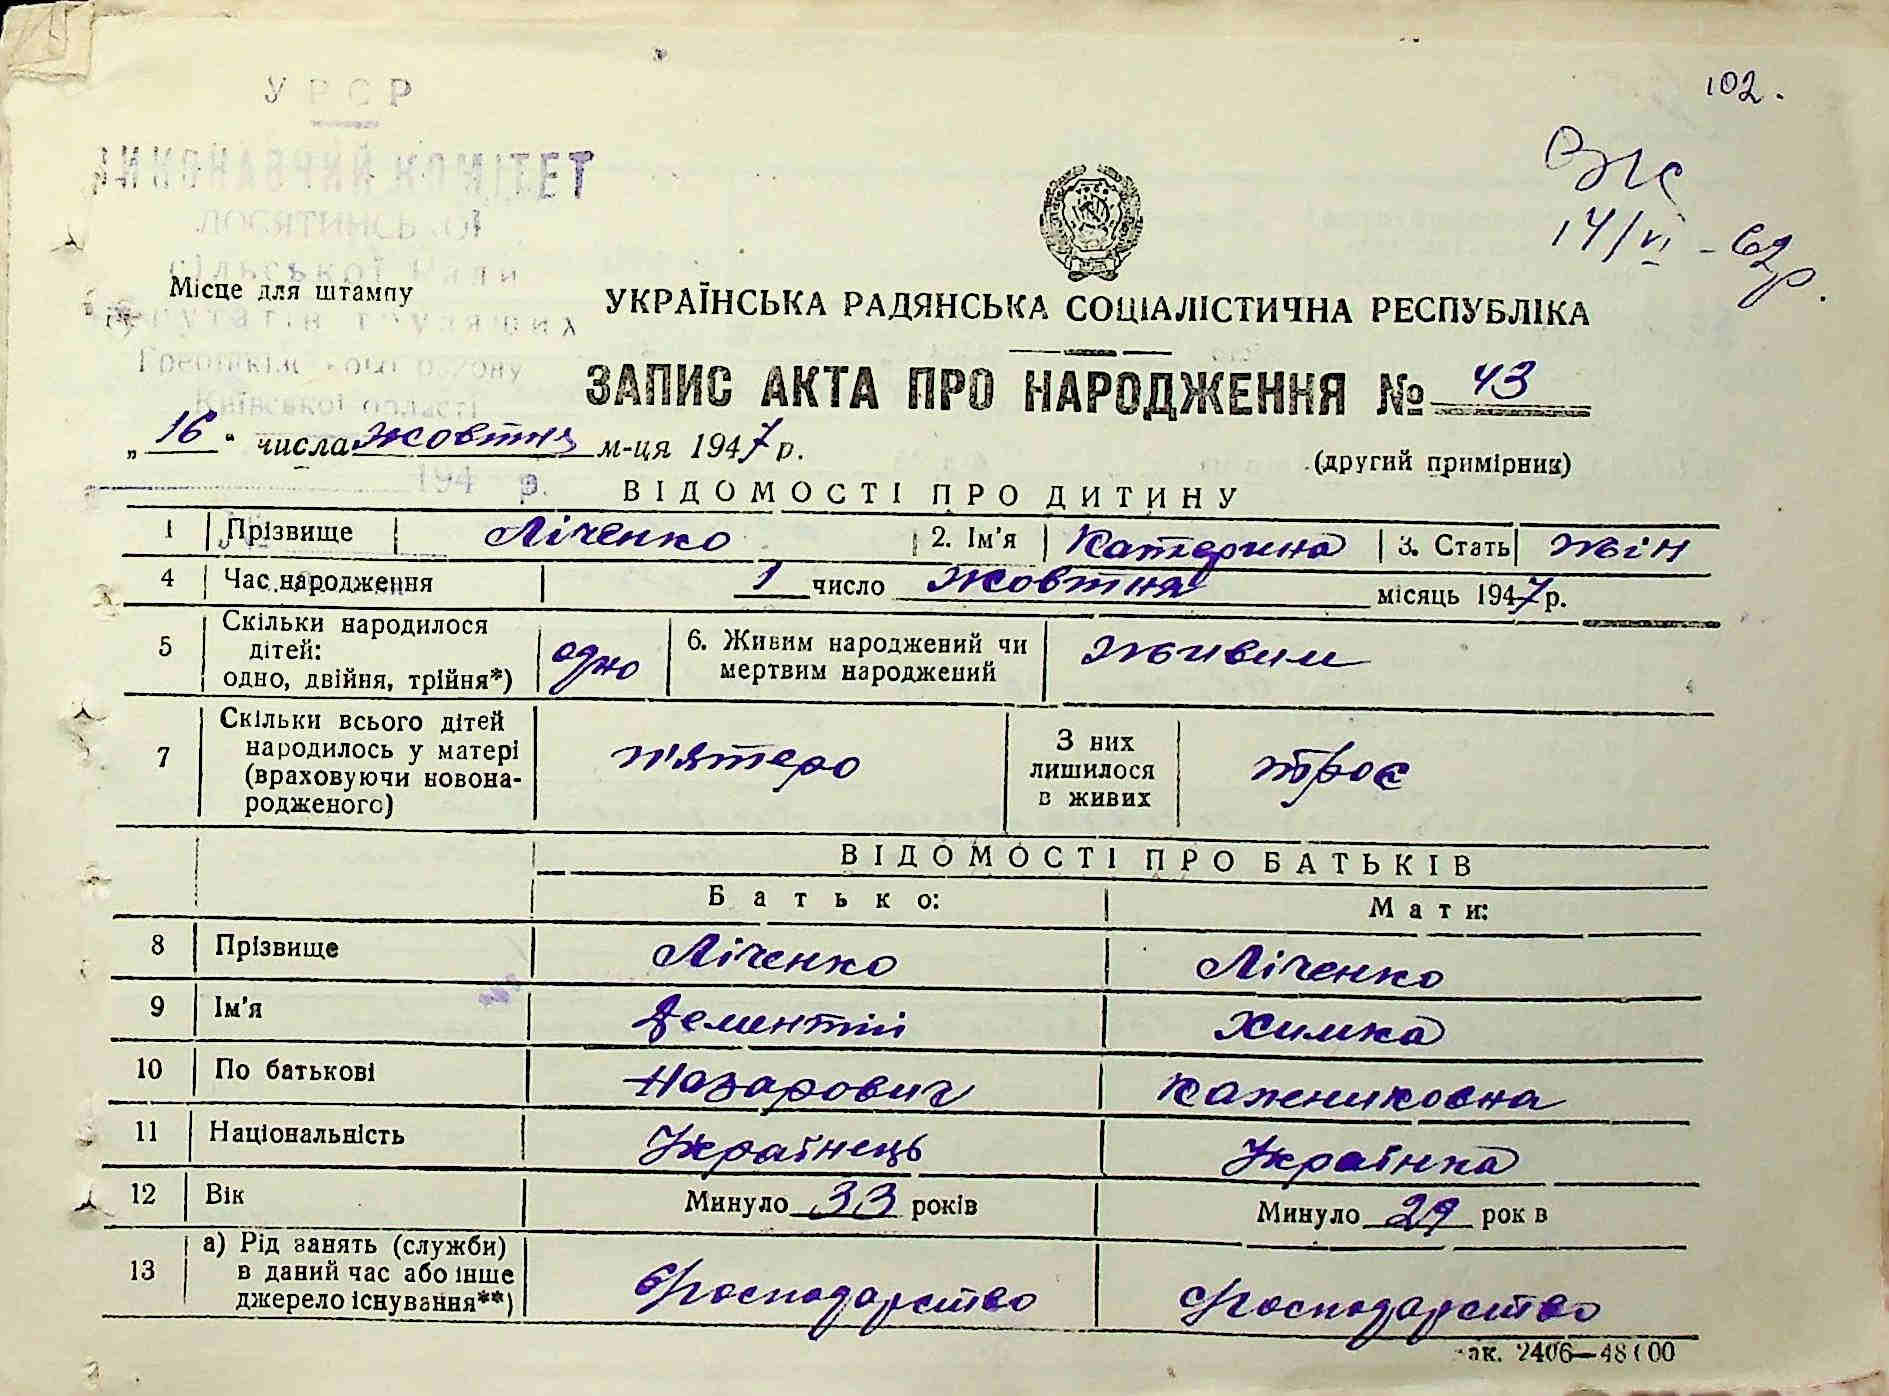 102.
УРСР
ВИКОНАВЧИЙ КОМІТЕТ
ЛОСЯТИНСЬКОЇ
сільської Ради
депутатів трудящих
Гребінківського району
Київської області
194 р.
14/VI - 62р.
Місце для штампу
УКРАЇНСЬКА РАДЯНСЬКА СОЦІАЛІСТИЧНА РЕСПУБЛІКА
ЗАПИС АКТА ПРО НАРОДЖЕННЯ № 43
„16“ числа жовтня м-ця 1947 р.
(другий примірник)
ВІДОМОСТІ ПРО ДИТИНУ
1 Прізвище Ліченко 2. Ім'я Катерина 3. Стать жін
4 Час народження 1 число жовтня місяць 1947 р.
5 Скільки народилося дітей: одно, двійня, трійня*) одно 6. Живим народжений чи мертвим народжений живим
7 Скільки всього дітей народилось у матері (враховуючи новонародженого) п'ятеро З них лишилося в живих троє
ВІДОМОСТІ ПРО БАТЬКІВ
Батько: Мати:
8 Прізвище Ліченко Ліченко
9 Ім'я Дементій Химка
10 По батькові Назарович
11 Національність Українець Українка
12 Вік Минуло 33 років Минуло 29 рок в
13 а) Рід занять (служби) в даний час або інше джерело існування**) Господарство Господарство
зак. 2406—48000